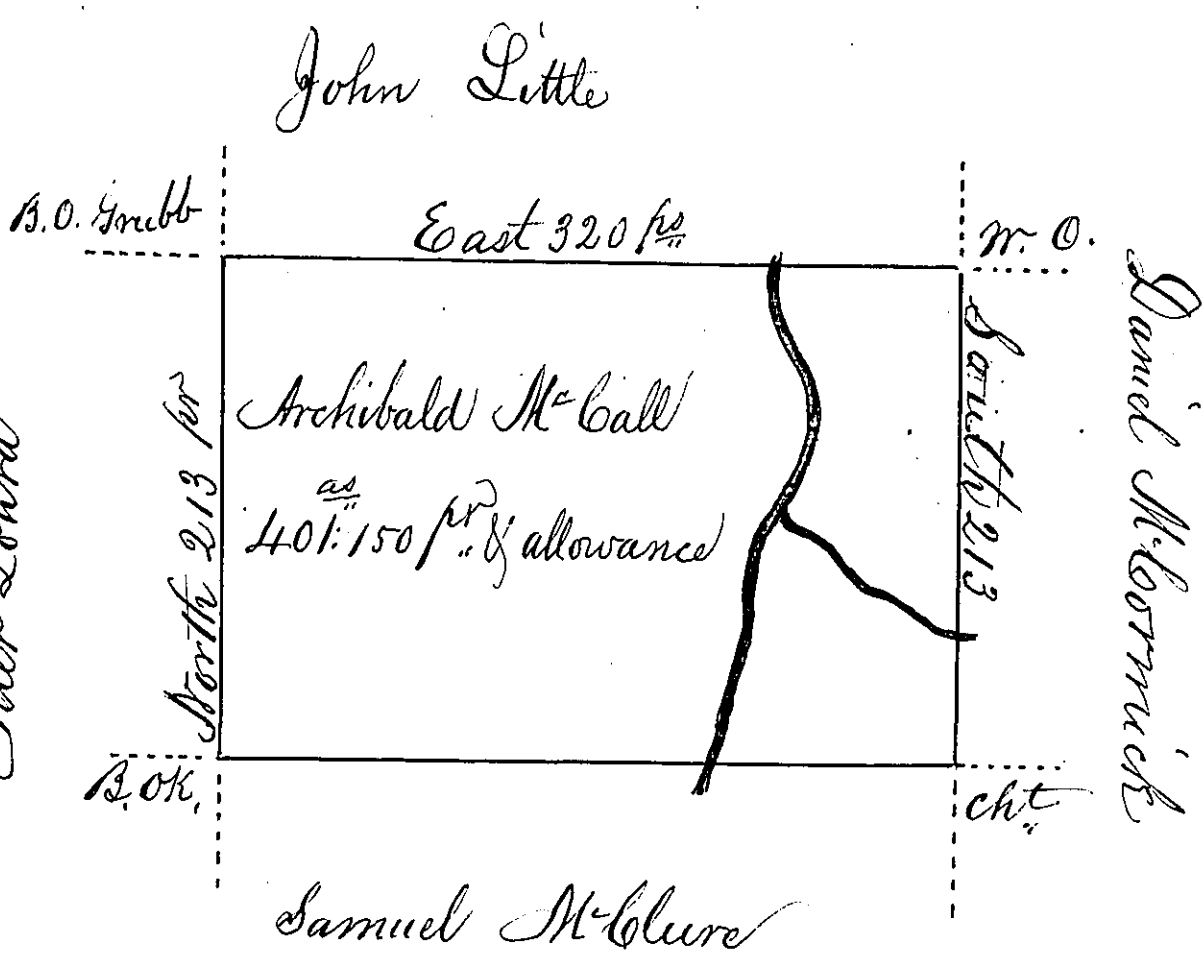 John Little
B.O. Grubb
East 320 ps
W. O.
Daniel McCormick
North 213 pr
Archibald McCall
as
401:150 pr & allowance
South 213
B. OK,
cht
Samuel McClure